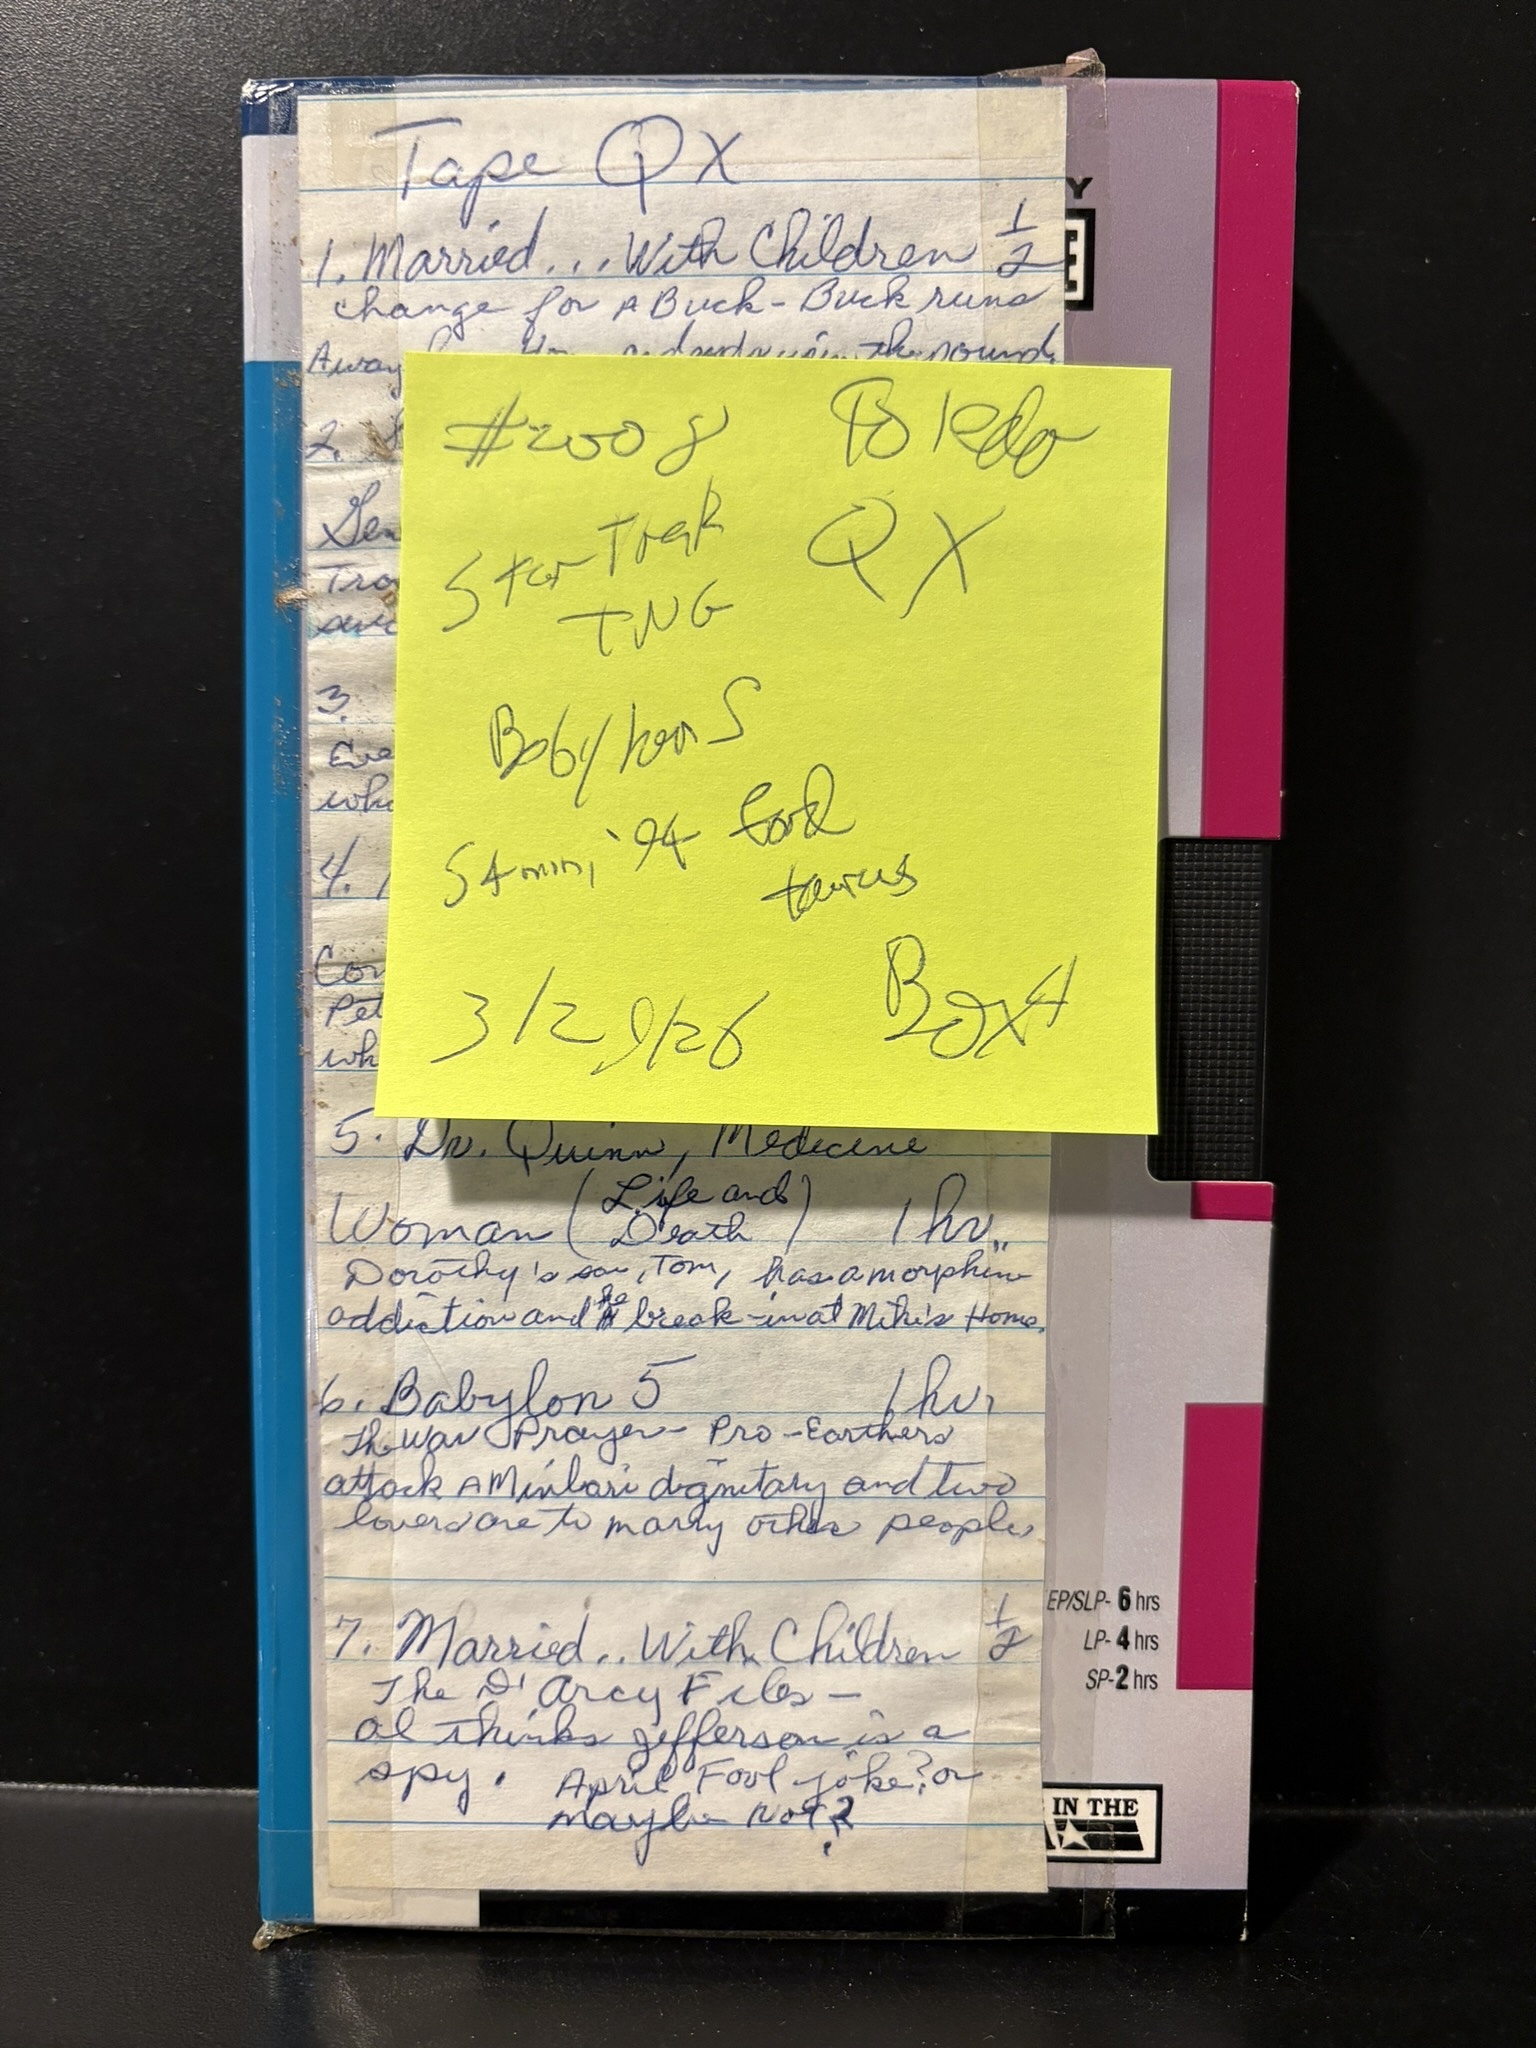 Tape QX
1. Married... With Children 1/2
Change for A Buck - Buck runs
Away
2.
#2008 Toledo
Star Trek QX
TNG
Babylon 5
54 min, '94 ford
taurus
3/29/26 Box 4
3.
4.
5. Dr. Quinn, Medicine
Woman (Life and Death) 1 hr.
Dorothy's son, Tom, has a morphine
addiction and he break-in at Mike's Home.
6. Babylon 5 1 hr.
The War Prayer - Pro-Earthers
attack A Minbari dignitary and two
lovers are to marry other people
7. Married.. With Children 1/2
The D'Arcy Files -
al thinks Jefferson is a
spy. April Fool joke? or
maybe Not?
EP/SLP- 6 hrs
LP- 4 hrs
SP- 2 hrs
IN THE